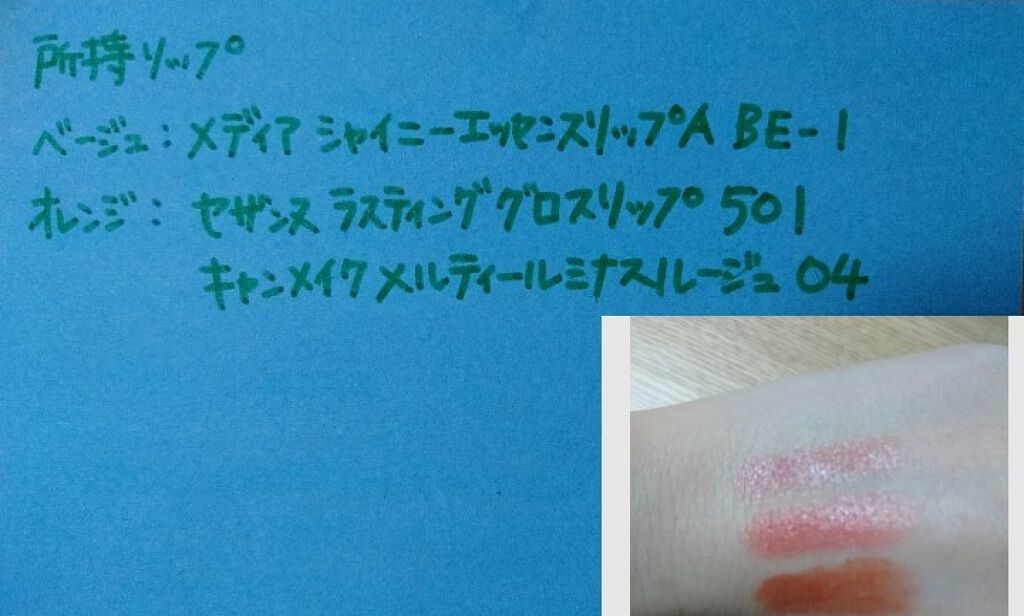 所持リップ
ベージュ：メディア シャイニーエッセンスリップA BE-1
オレンジ： セザンヌ ラスティンググロスリップ 501
キャンメイク メルティールミナスルージュ 04